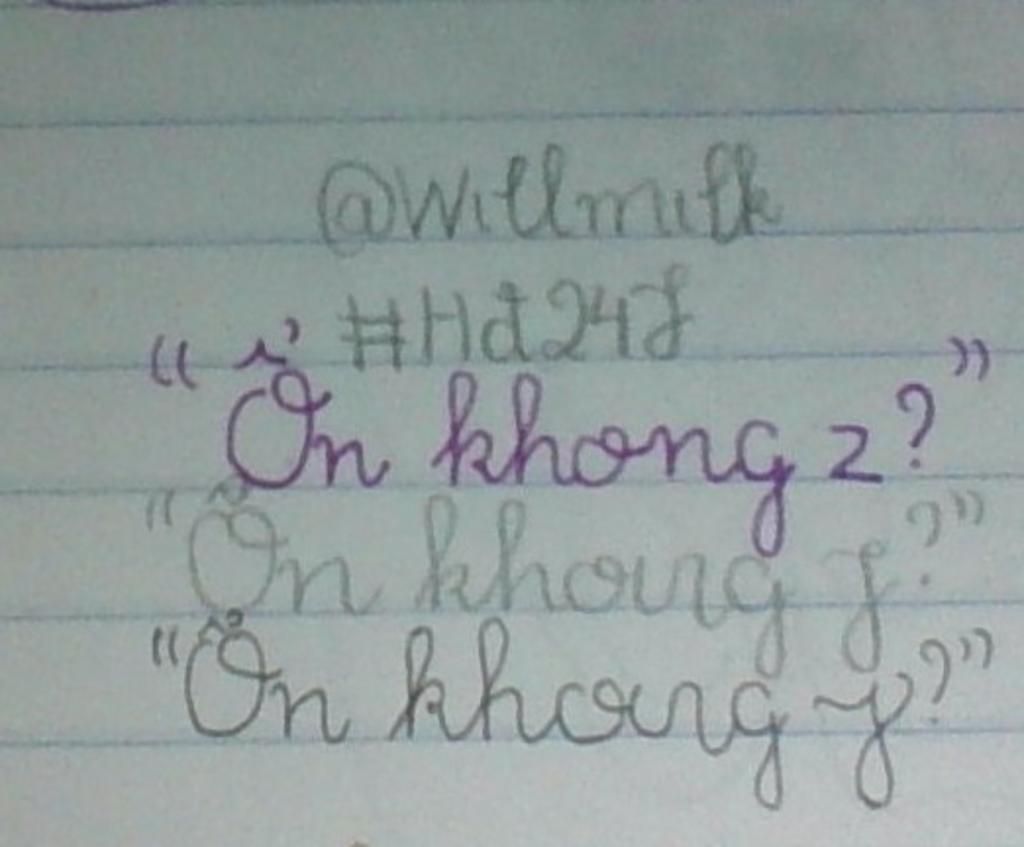 @Willmilk
#Hd24J
"Ổn khong z?"
"Ổn khong z?"
"Ổn khong z?"